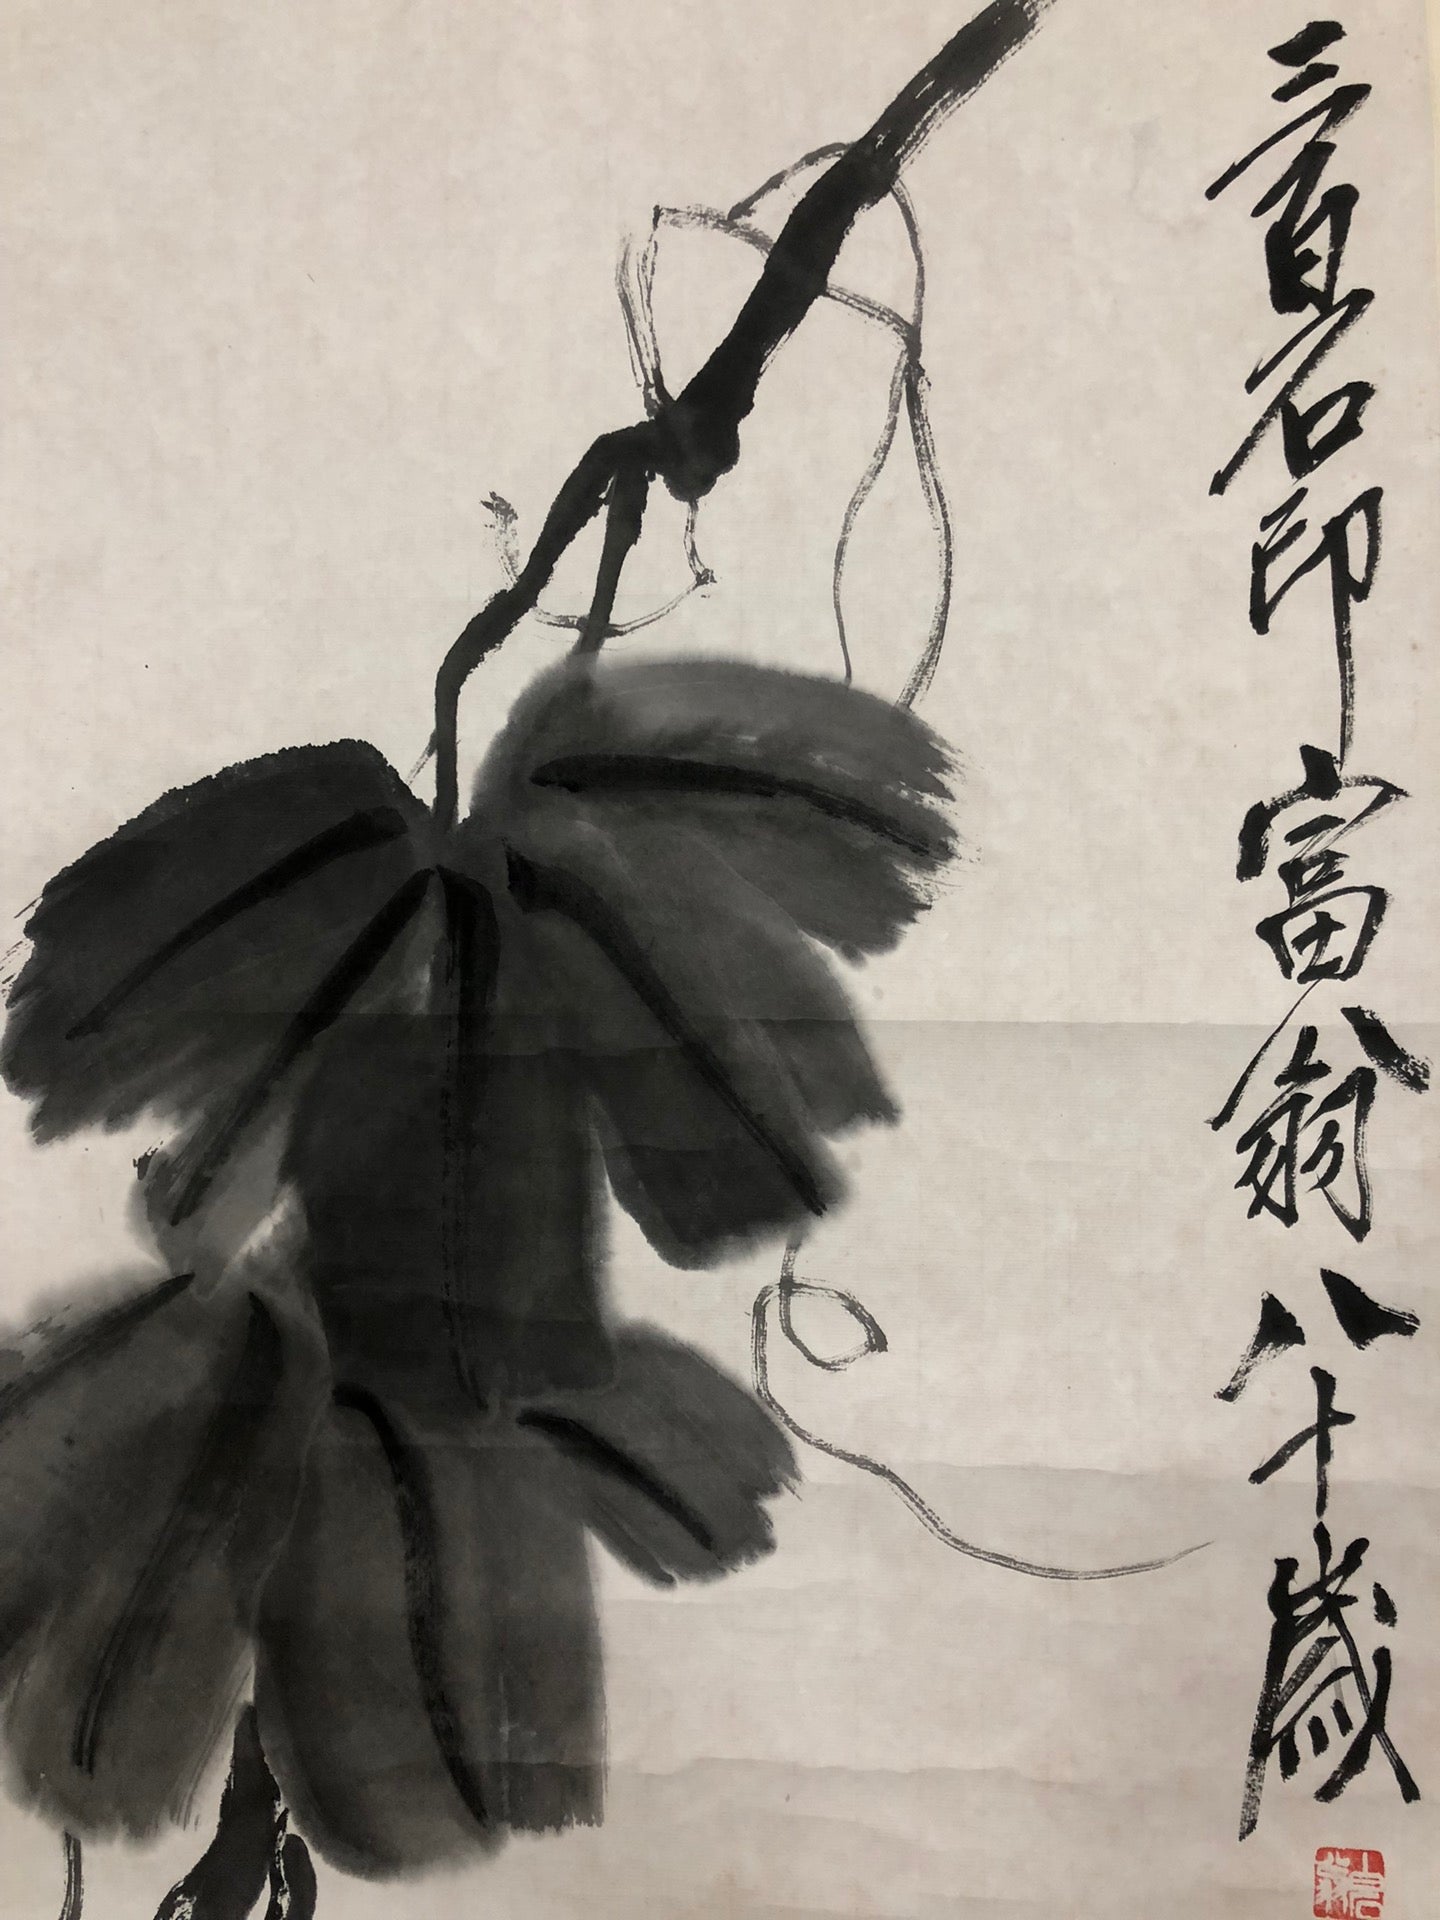 三百石印富翁八十歲